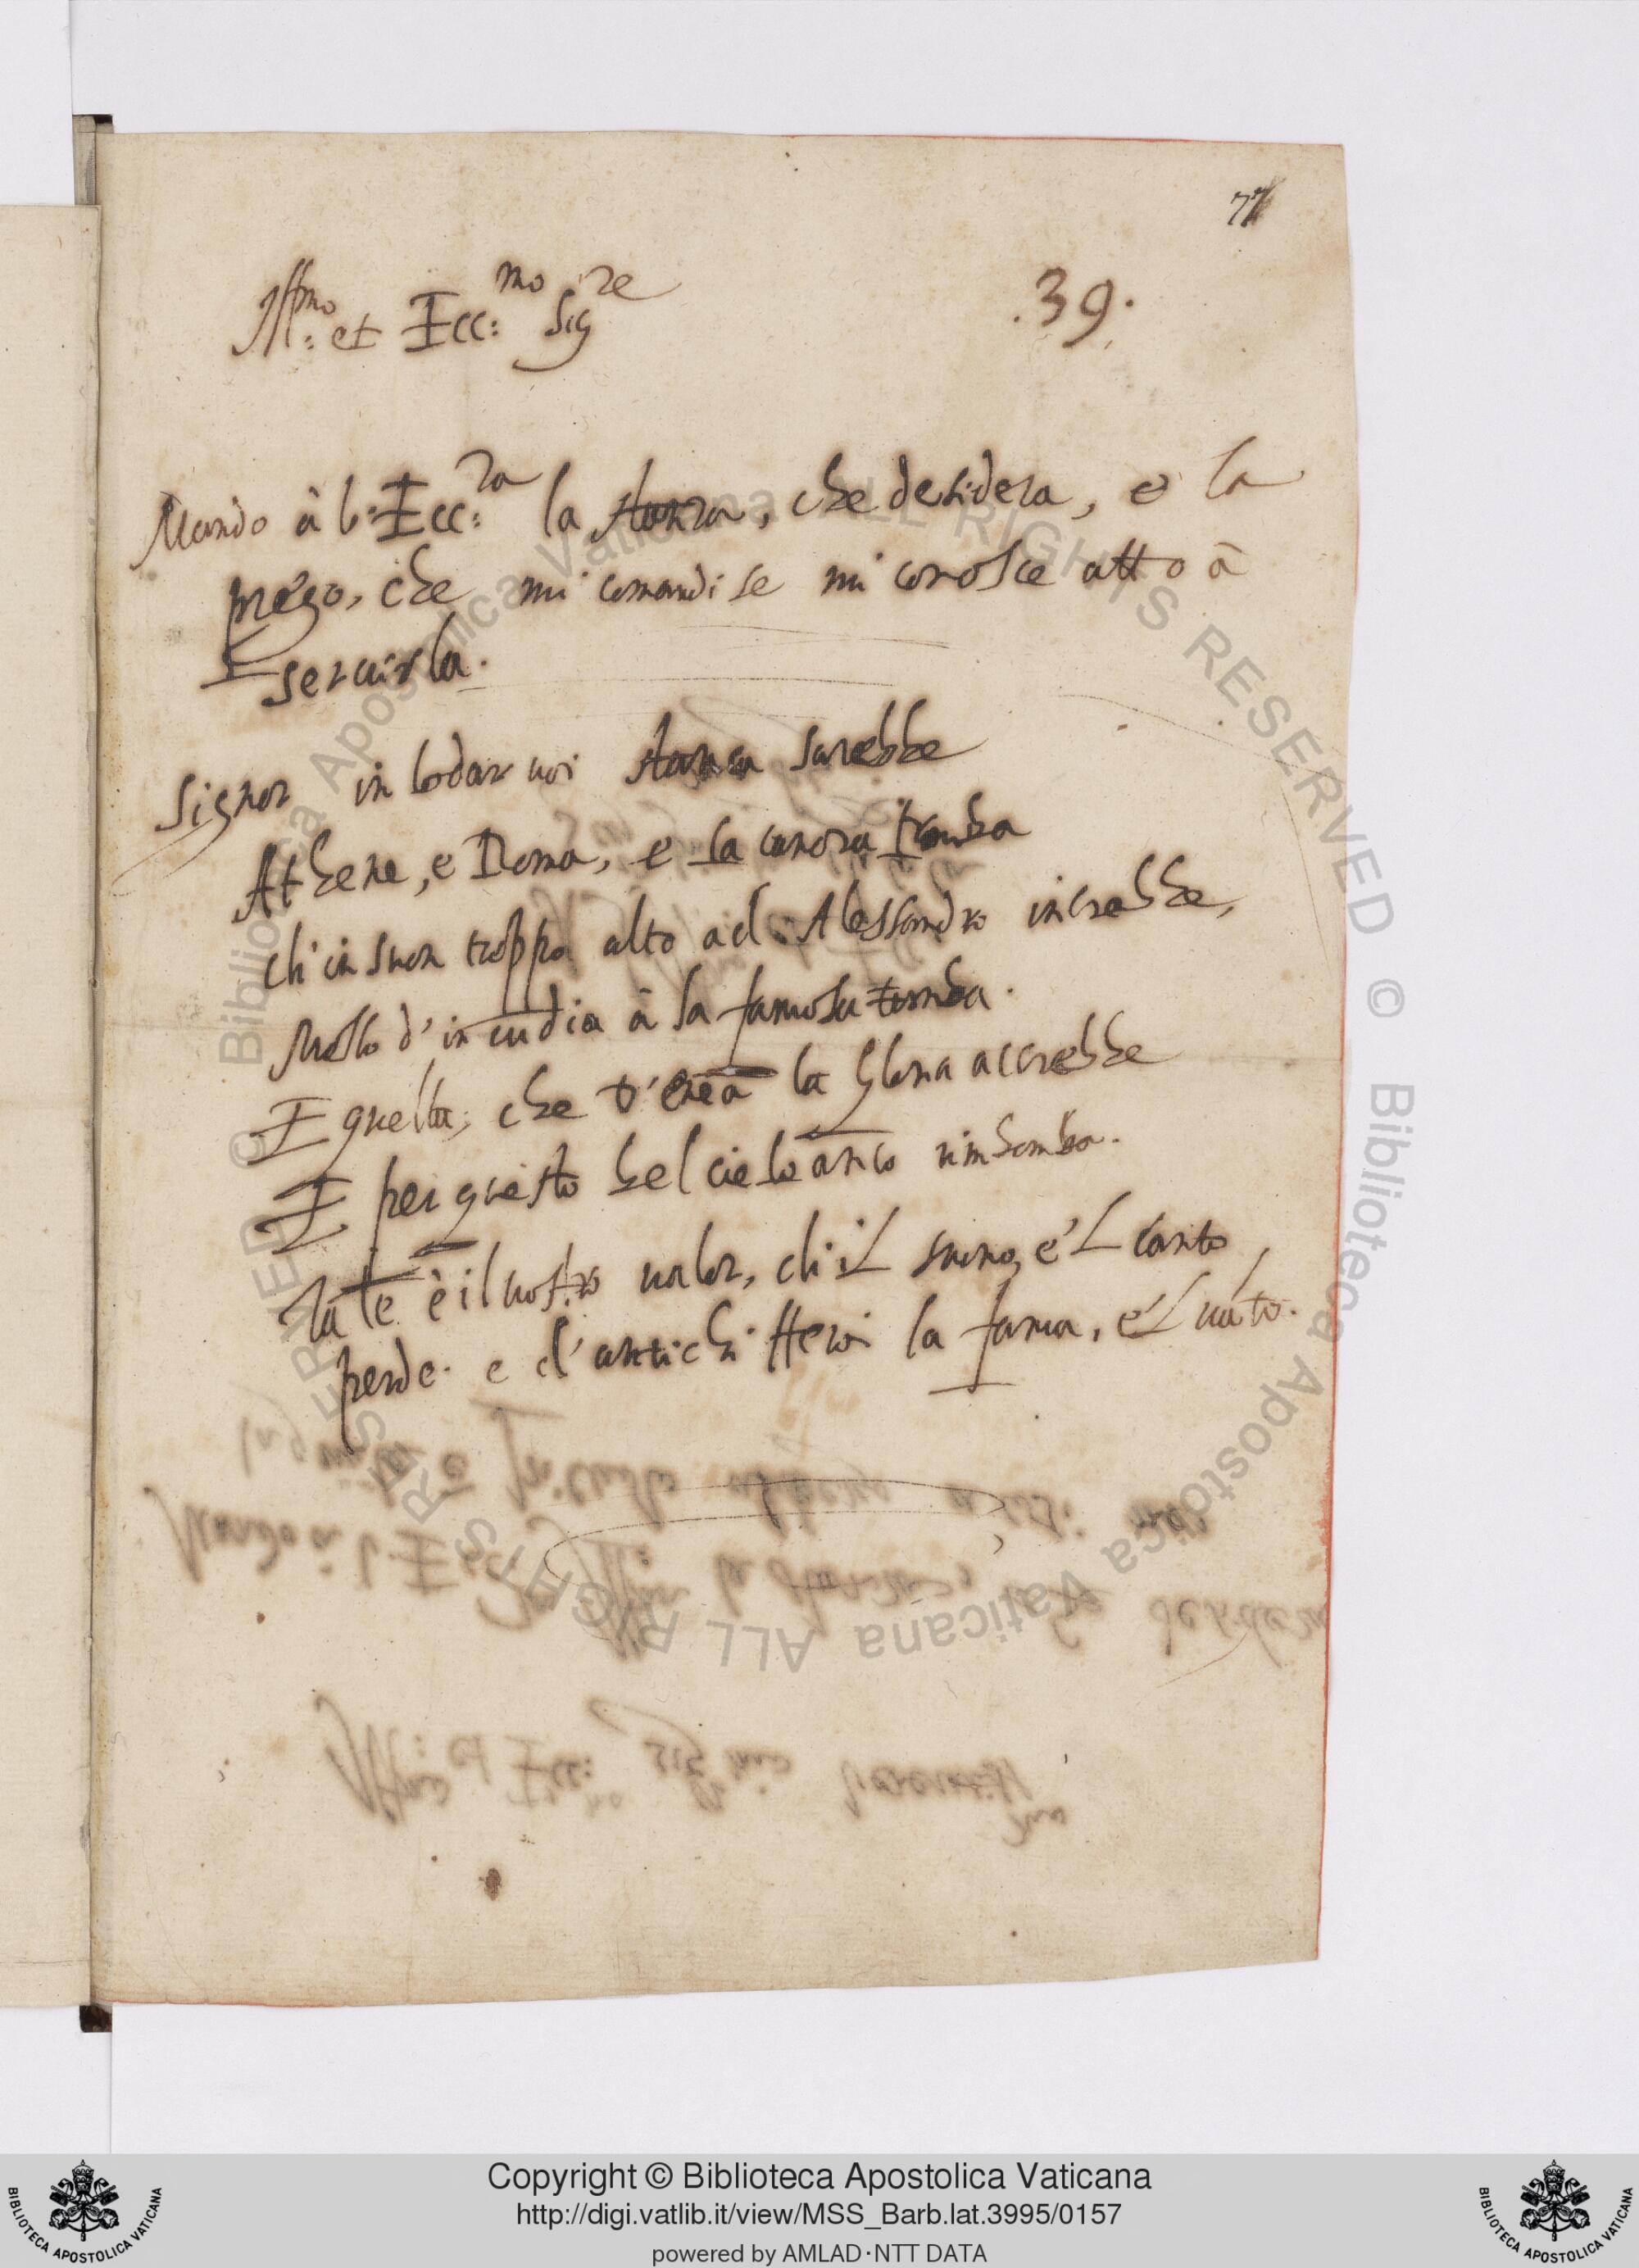 77
39.
Ill.mo et Ecc.mo Sig.re
Mando à V. Ecc.za la stanza, che desidera, e la
prego, che mi comandi se mi conosce atto à
servirla.
Signor in lodar voi stanca sarebbe
Athene, e Roma, e la canora tromba
ch'in suon troppo alto ad Alessandro increbbe,
Mosso d'invidia à la famosa tomba.
E quella, che d'enea la gloria accrebbe
E per questo bel cielo anco rimbomba.
Tale è il vostro valor, ch'il suono, e 'l canto,
perde. e d'antichi Heroi la fama, e 'l vanto.
Copyright © Biblioteca Apostolica Vaticana
http://digi.vatlib.it/view/MSS_Barb.lat.3995/0157
powered by AMLAD·NTT DATA
BIBLIOTECA APOSTOLICA VATICANA
BIBLIOTECA APOSTOLICA VATICANA
© Biblioteca Apostolica Vaticana ALL RIGHTS RESERVED
© Biblioteca Apostolica Vaticana ALL RIGHTS RESERVED